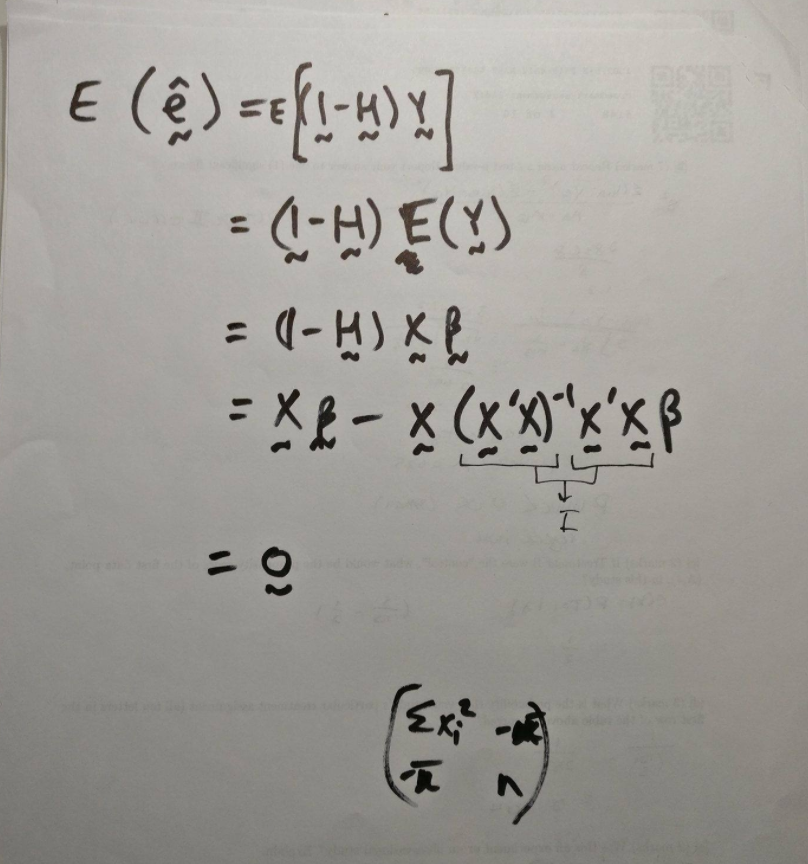 E (ê) = E[(1-H)Y]
= (1-H) E(Y)
= (1-H) X β
= X β - X (X'X)⁻¹ X'X β
I
= 0
Σxᵢ²
n